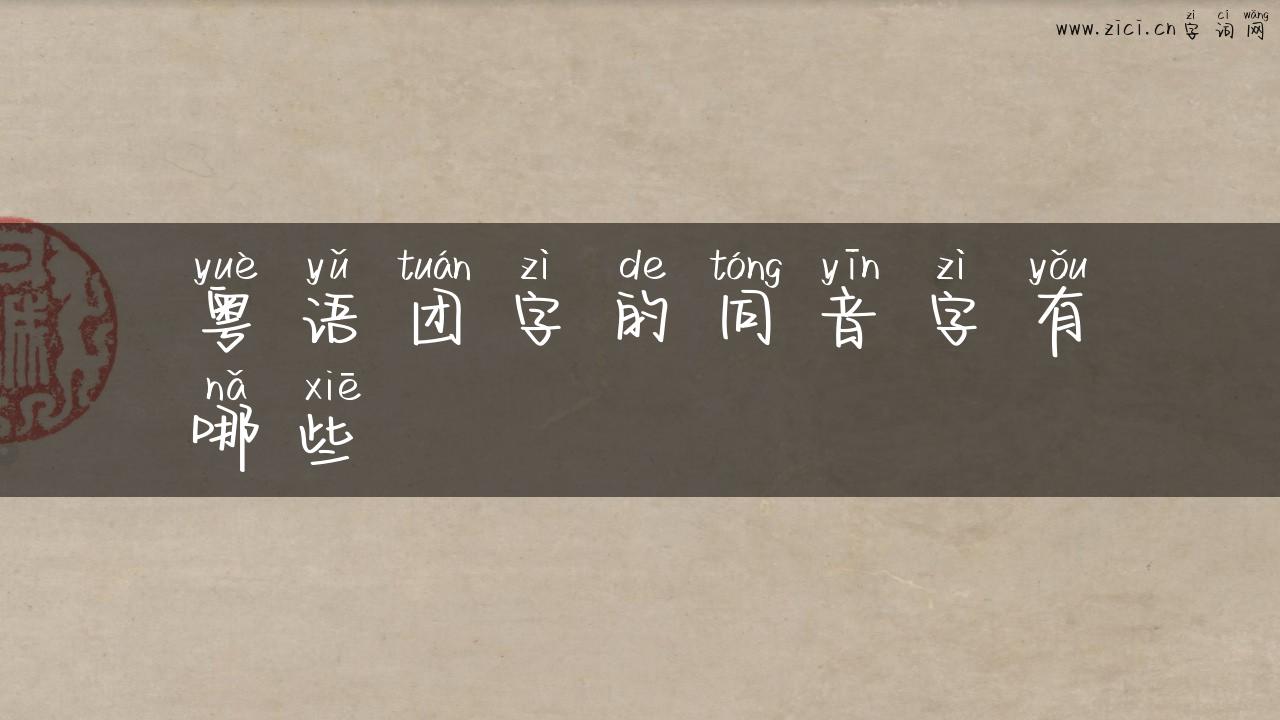 zì cí wǎng
www.zici.cn 字词网
yuè yǔ tuán zì de tóng yīn zì yǒu
粤语团字的同音字有
nǎ xiē
哪些